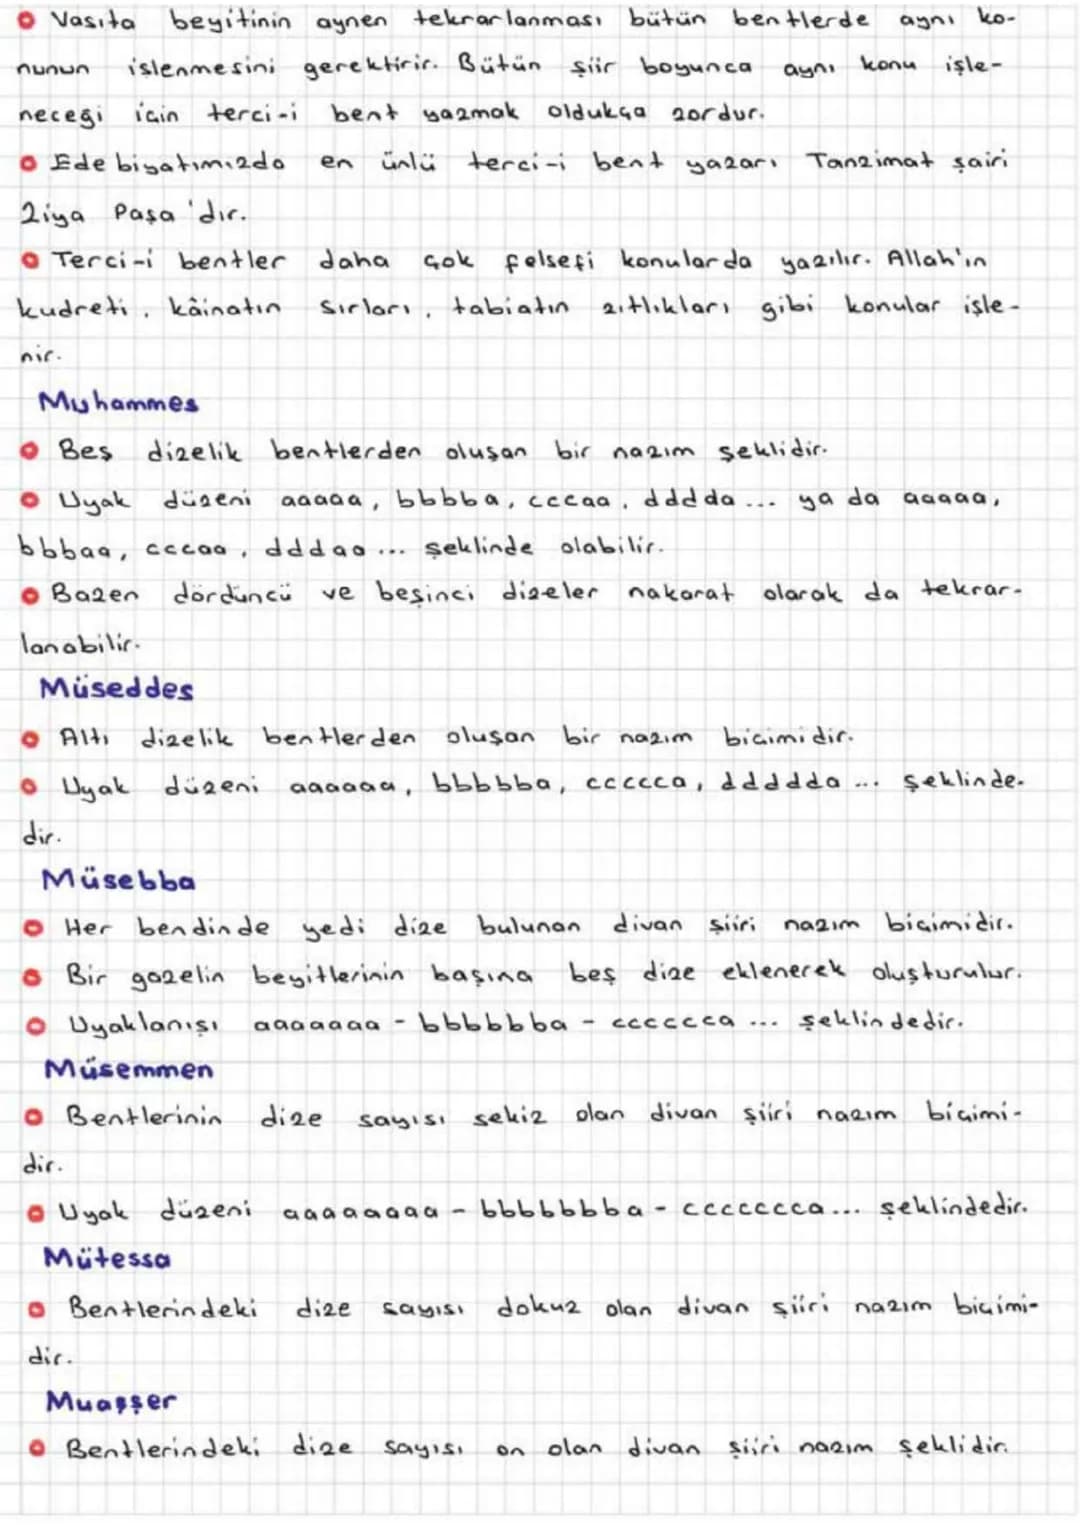 Vasıta beyitinin aynen tekrarlanması bütün bentlerde aynı ko-
nunun işlenmesini gerektirir. Bütün şiir boyunca aynı konu işle-
neceği için terci-i bent yazmak oldukça zordur.
Edebiyatımızda en ünlü terci-i bent yazarı Tanzimat şairi
Ziya Paşa'dır.
Terci-i bentler daha çok felsefi konularda yazılır. Allah'ın
kudreti, kâinatın sırları, tabiatın zıtlıkları gibi konular işle-
nir.
Muhammes
Beş dizelik bentlerden oluşan bir nazım şeklidir.
Uyak düzeni aaaaa, bbbba, cccaa, dddda ... ya da aaaaa,
bbbaa, cccaa, dddaa ... şeklinde olabilir.
Bazen dördüncü ve beşinci dizeler nakarat olarak da tekrar-
lanabilir.
Müseddes
Altı dizelik bentlerden oluşan bir nazım biçimidir.
Uyak düzeni aaaaaa, bbbbba, ccccca, ddddda ... şeklinde-
dir.
Müsebba
Her bendinde yedi dize bulunan divan şiiri nazım biçimidir.
Bir gazelin beyitlerinin başına beş dize eklenerek oluşturulur.
Uyaklanışı aaaaaaa - bbbbbba - cccccca ... şeklindedir.
Müsemmen
Bentlerinin dize sayısı sekiz olan divan şiiri nazım biçimi-
dir.
Uyak düzeni aaaaaaaa - bbbbbbba - ccccccca ... şeklindedir.
Mütessa
Bentlerindeki dize sayısı dokuz olan divan şiiri nazım biçimi-
dir.
Muaşşer
Bentlerindeki dize sayısı on olan divan şiiri nazım şeklidir.